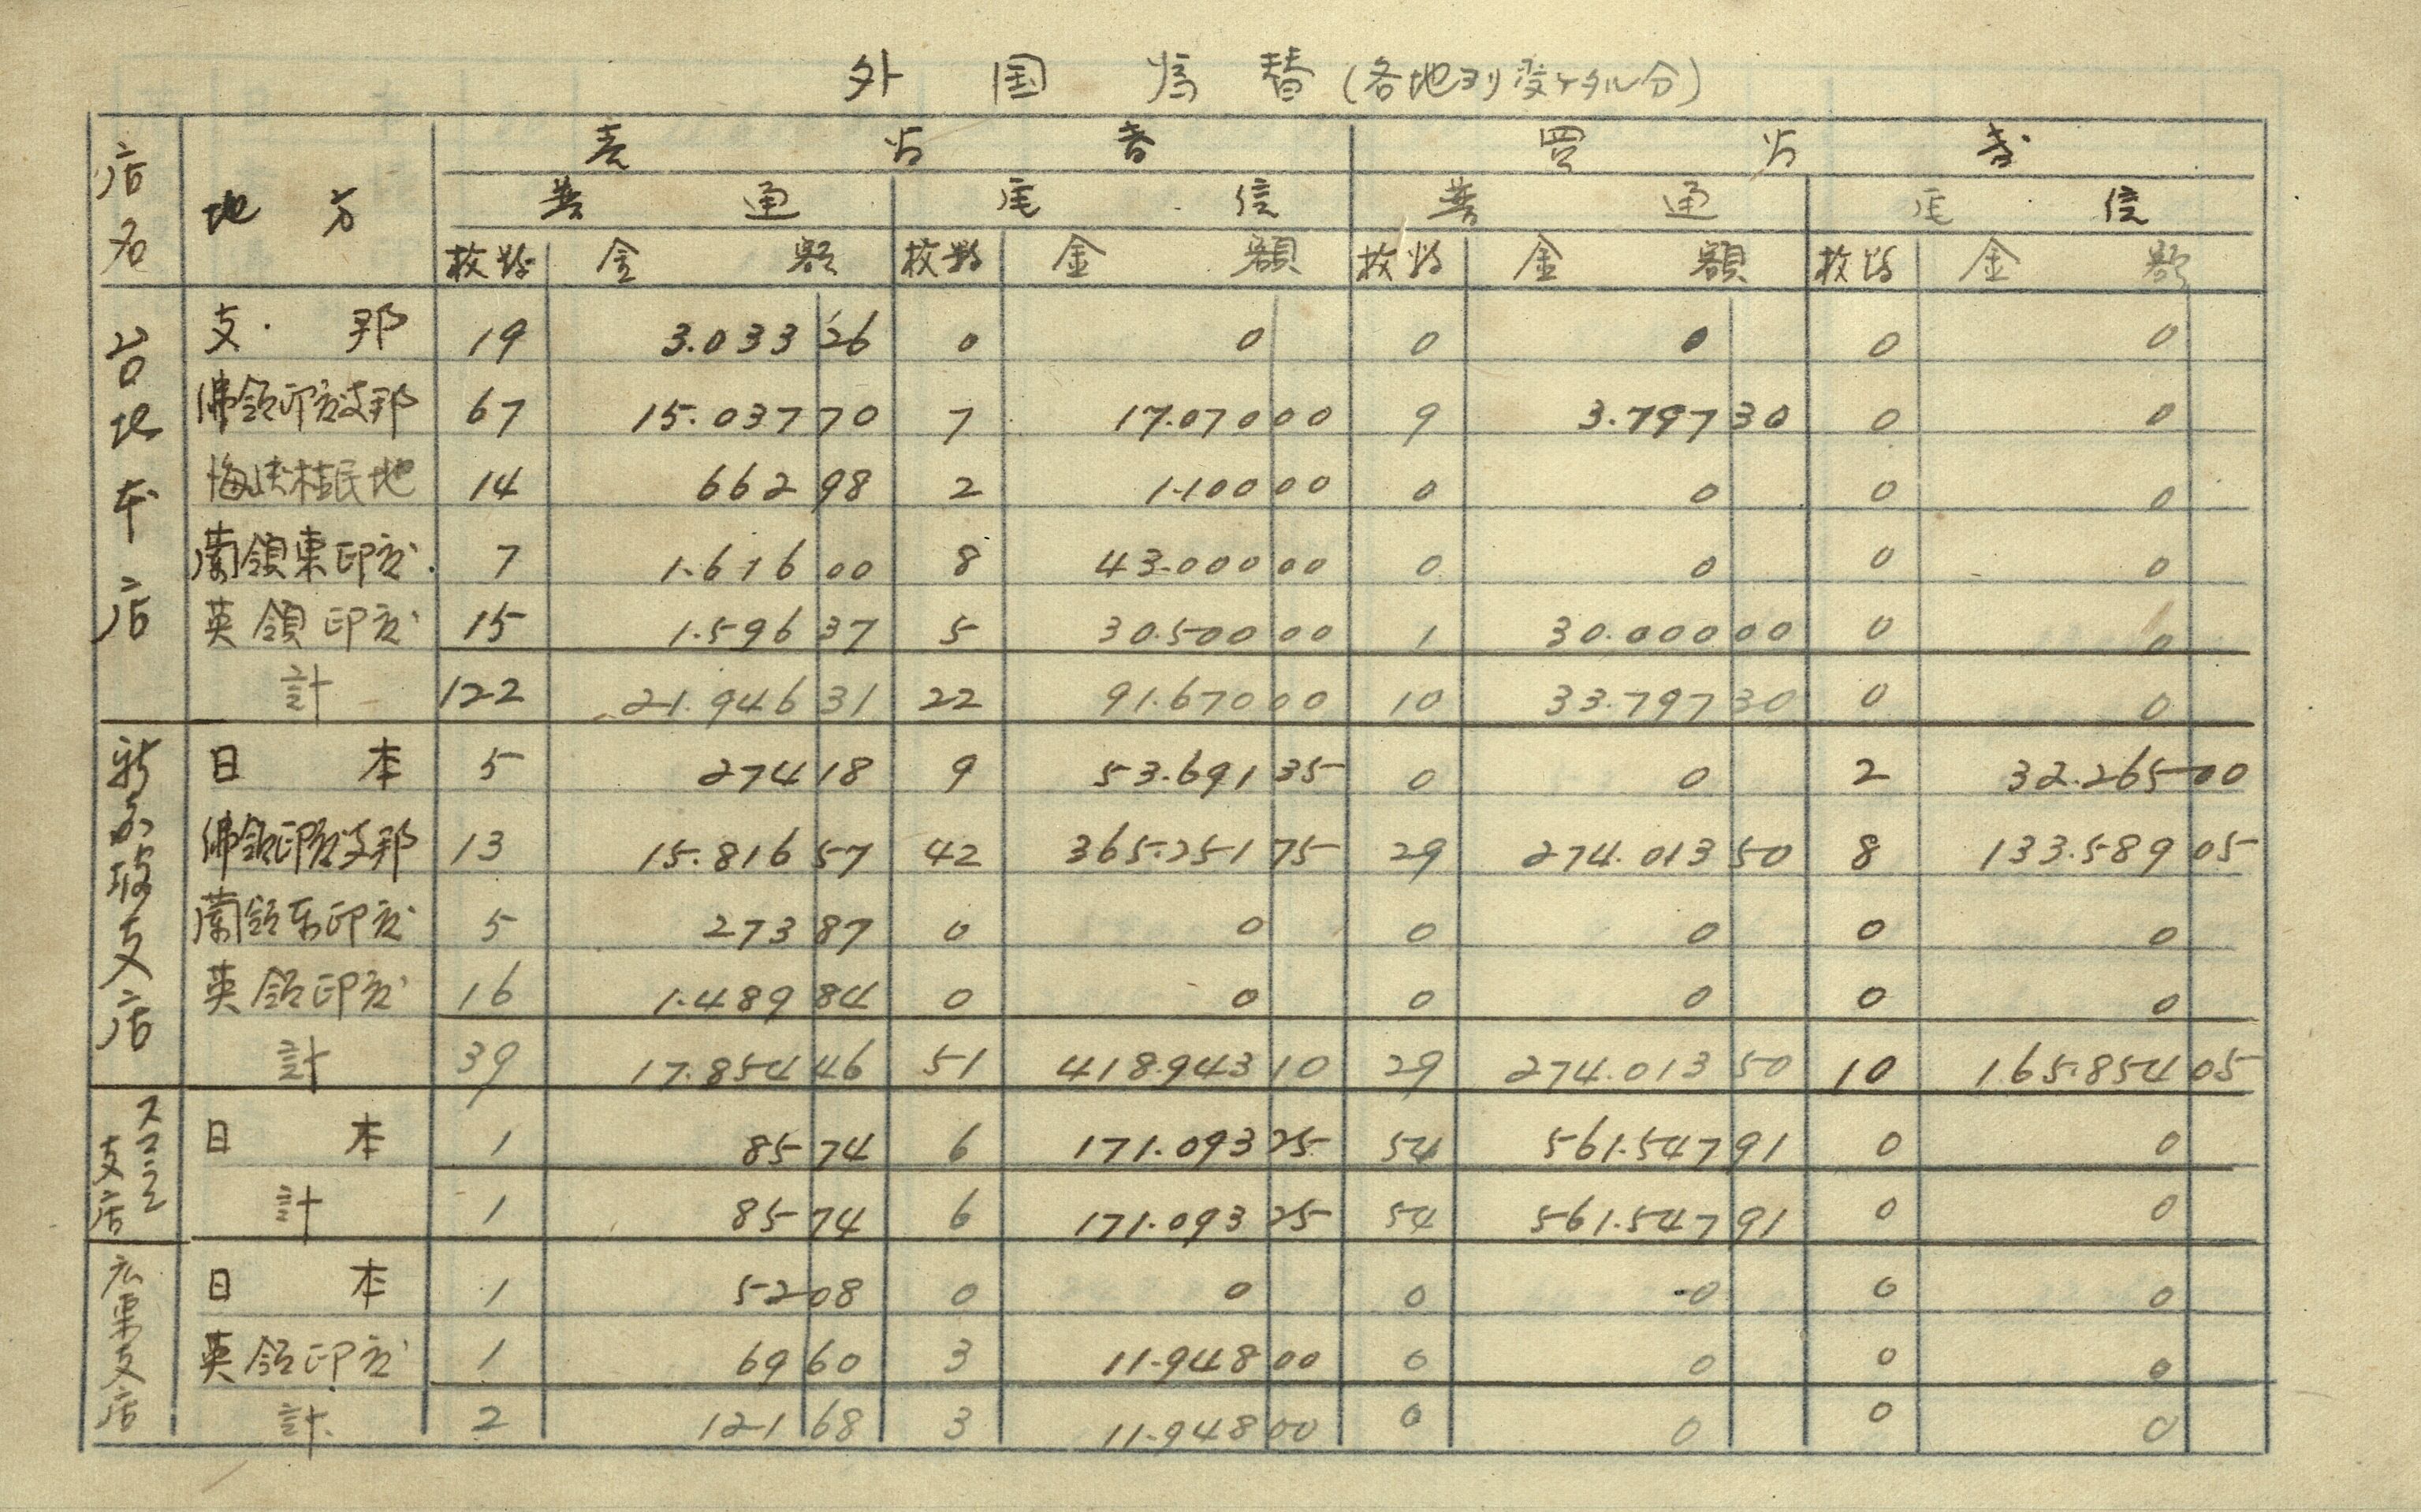 外国為替(各地ヨリ受ケタル分)
店名 地方 売為替 買為替
普通 電信 普通 電信
枚数 金額 枚数 金額 枚数 金額 枚数 金額
台地本店
支那 19 3.033 26 0 0 0 0 0 0
佛領印度支那 67 15.037 70 7 17.070 00 9 3.797 30 0 0
海峡植民地 14 662 98 2 1.100 00 0 0 0 0
蘭領東印度 7 1.616 00 8 43.000 00 0 0 0 0
英領印度 15 1.596 37 5 30.500 00 1 30.000 00 0 0
計 122 21.946 31 22 91.670 00 10 33.797 30 0 0
新嘉坡支店
日本 5 274 18 9 53.691 35 0 0 2 32.265 00
佛領印度支那 13 15.816 57 42 365.251 75 29 274.013 50 8 133.589 05
蘭領东印度 5 273 87 0 0 0 0 0 0
英領印度 16 1.489 84 0 0 0 0 0 0
計 39 17.854 46 51 418.943 10 29 274.013 50 10 165.854 05
支店
日本 1 85 74 6 171.093 25 54 561.547 91 0 0
計 1 85 74 6 171.093 25 54 561.547 91 0 0
広東支店
日本 1 52 08 0 0 0 0 0 0
英領印度 1 69 60 3 11.948 00 0 0 0 0
計 2 121 68 3 11.948 00 0 0 0 0